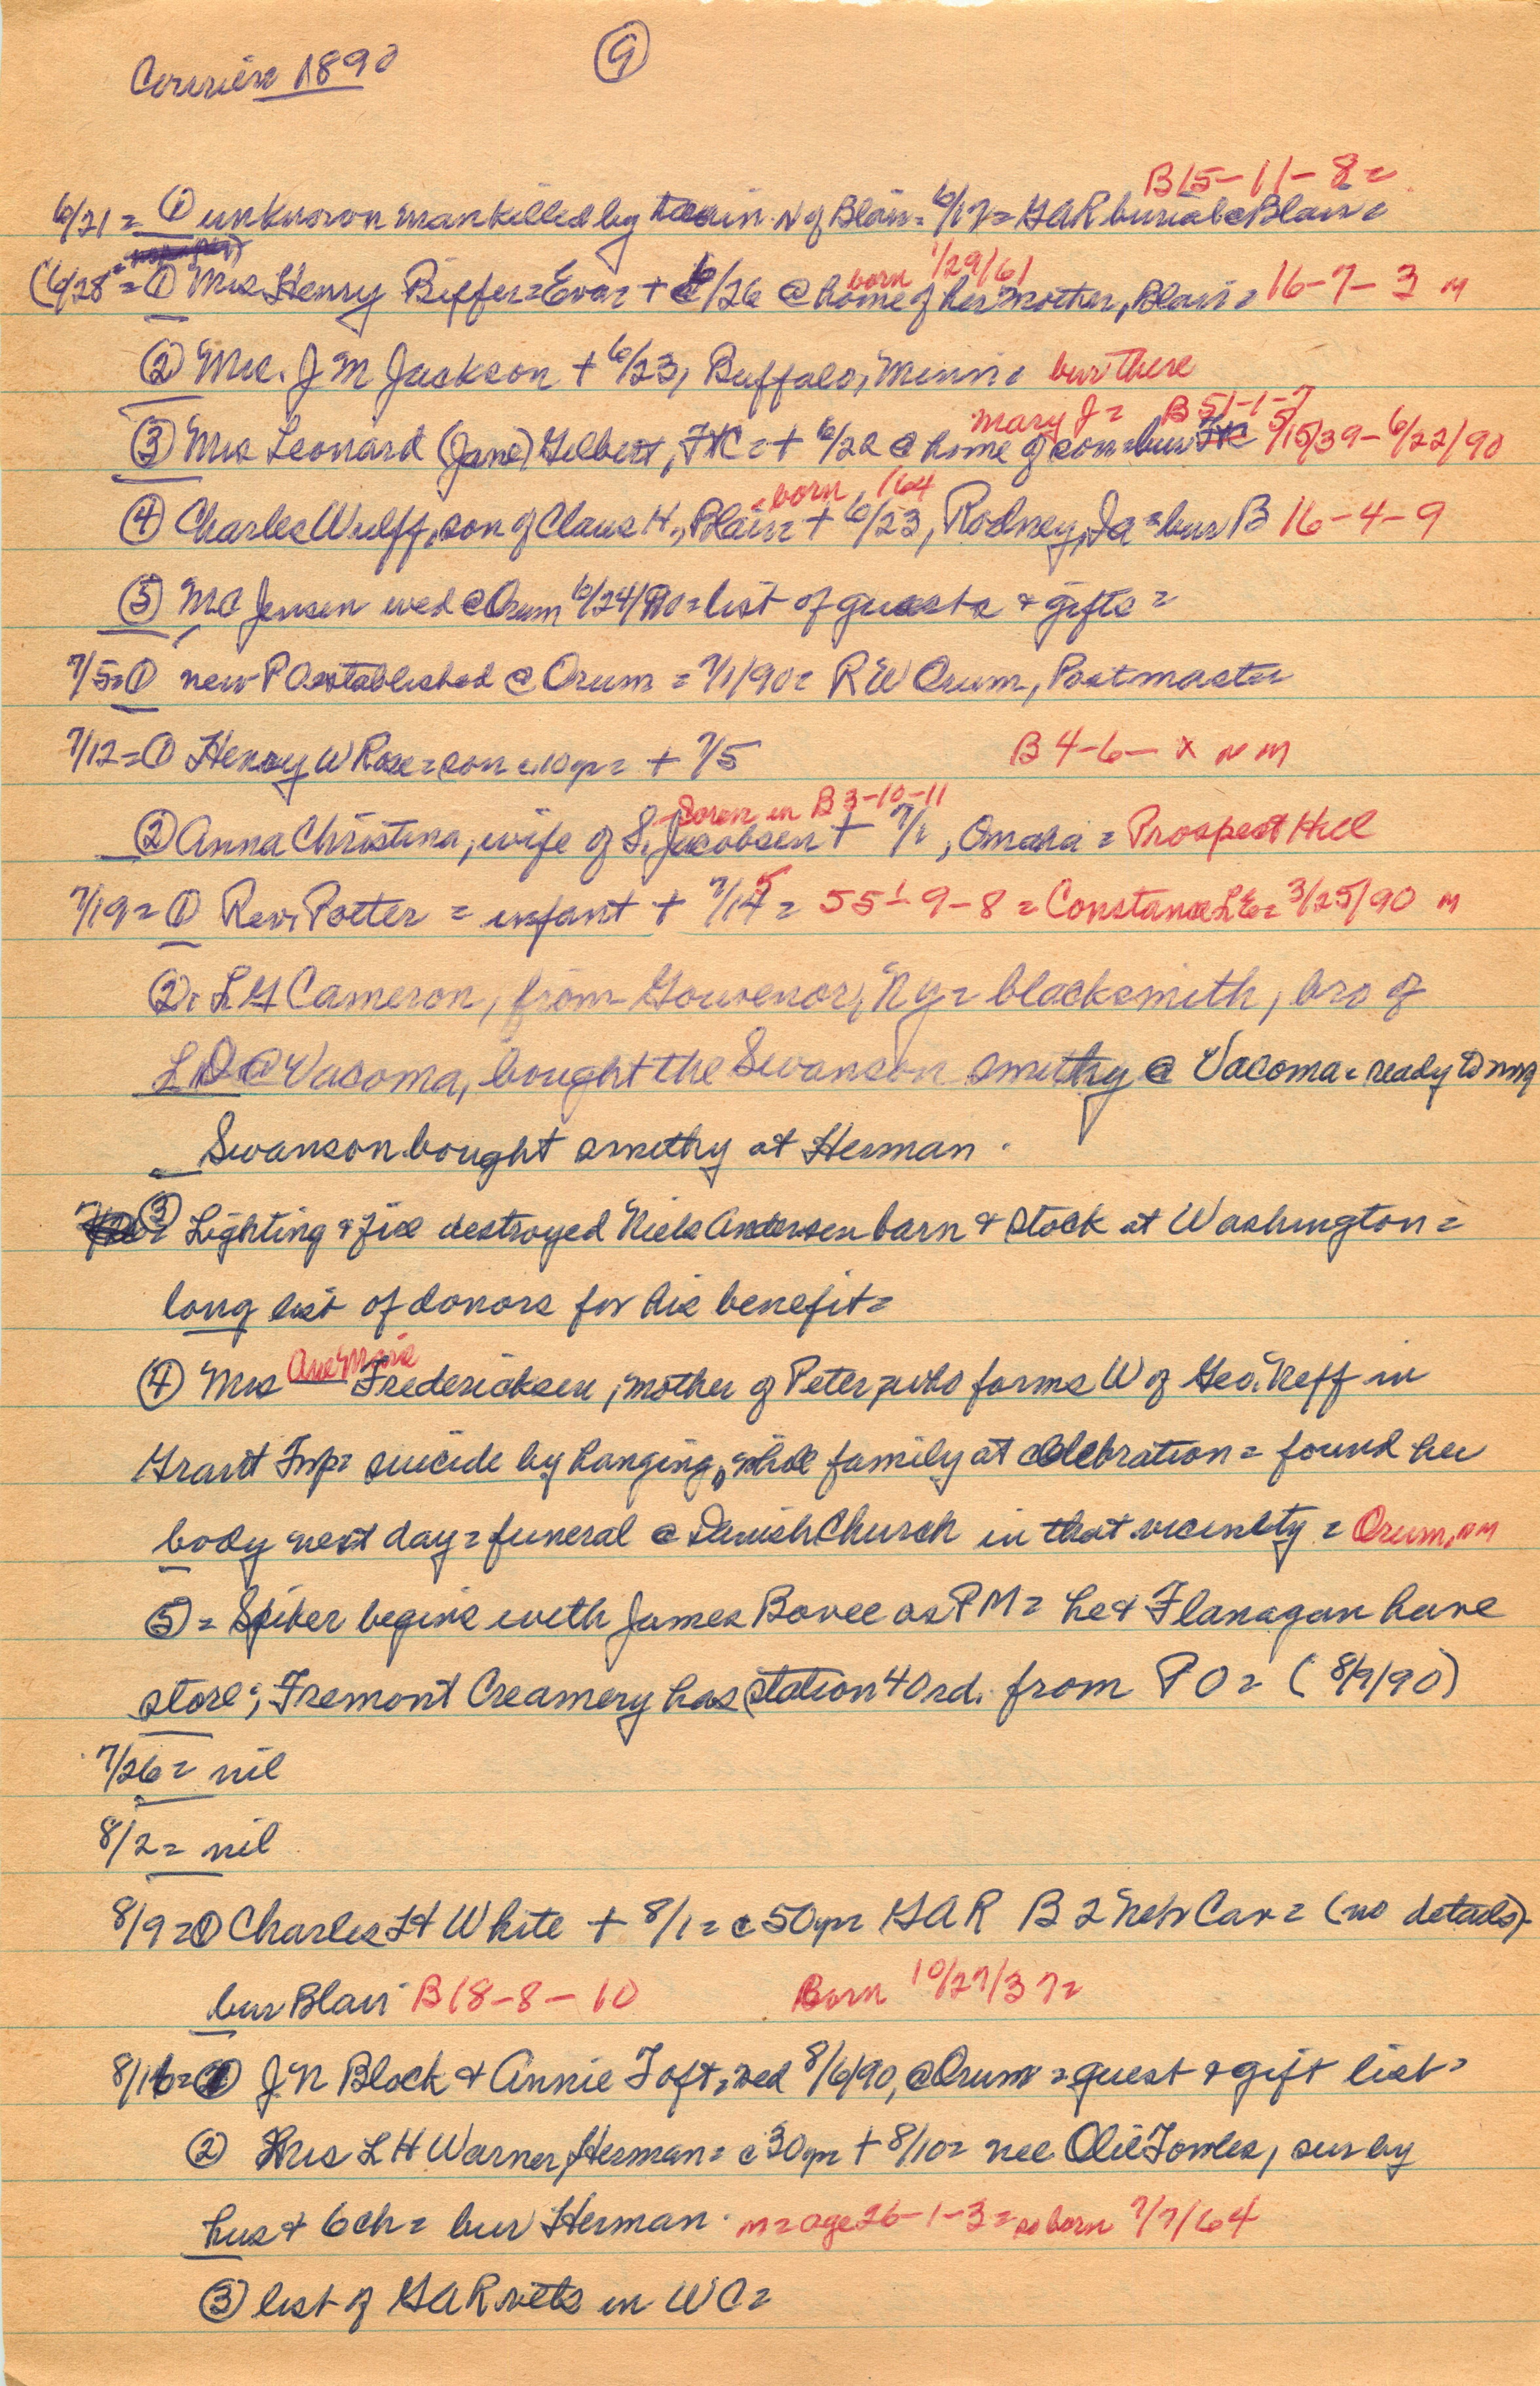 Courier 1890 ⑨
B15-11-8=
6/21= ① unknown man killed by train N of Blair= 6/17= GAR burial @ Blair=
born 1/29/61
(6/28= ① Mrs Henry Pieffer=Eva= + 6/26 @ home of her mother, Blair= 16-7-3 M
② Mrs. J M Jackson + 6/23, Buffalo, Minn= bur there
Mary J= B51-1-7
③ Mrs Leonard (Jane) Gilbert, FTC=+ 6/22 @ home of son=bur FTC 5/15/39-6/22/90
=born /64
④ Charles Wulff, son of Claus H., Blair= + 6/23, Rodney, Ia=bur B 16-4-9
⑤ MC Jensen wed @ Orum 6/24/90=list of guests & gifts=
7/5=① new PO established @ Orum = 7/1/90= R W Orum, Postmaster
7/12=① Henry W Rose=son c10yr= + 7/5 B 4-6- X NM
in B3-10-11
② Anna Christina, wife of S. Jacobsen + 7/1, Omaha = Prospect Hill
7/19= ① Rev. Potter = infant + 7/15= 55-9-8=Constance LE= 3/25/90 M
②. L G Cameron, from Gouvenor, Ny= blacksmith, bro of
L D @ Vacoma, bought the Swanson smithy @ Vacoma= ready to
Swanson bought smithy at Herman.
③ Lighting & fire destroyed Niels Andersen barn & stock at Washington=
long list of donors for his benefit=
Ane Marie
④ Mrs Fredericksen, mother of Peter, who farms W of Geo. Neff in
Grant Twp= suicide by hanging, while family at celebration= found her
body next day=funeral @ Danish Church in that vicinity = Orum, NM
⑤= Spiker begins with James Bovee as PM= he & Flanagan have
store; Fremont Creamery has station 40 rd. from PO= (8/9/90)
7/26= nil
8/2= nil
8/9=① Charles H White + 8/1= c50yr= GAR B 2 Neb Cav= (no details)-
bur Blair B18-8-10 Born 10/27/37=
8/16=① J.N Block & Annie Toft, wed 8/6/90, @ Orum =guest & gift list=
② Mrs L H Warner, Herman= c30yr + 8/10= nee Olie Fowles, sur by
hus & 6ch= bur Herman. m=age 26-1-3=so born 7/7/64
③ list of GAR vets in WC=